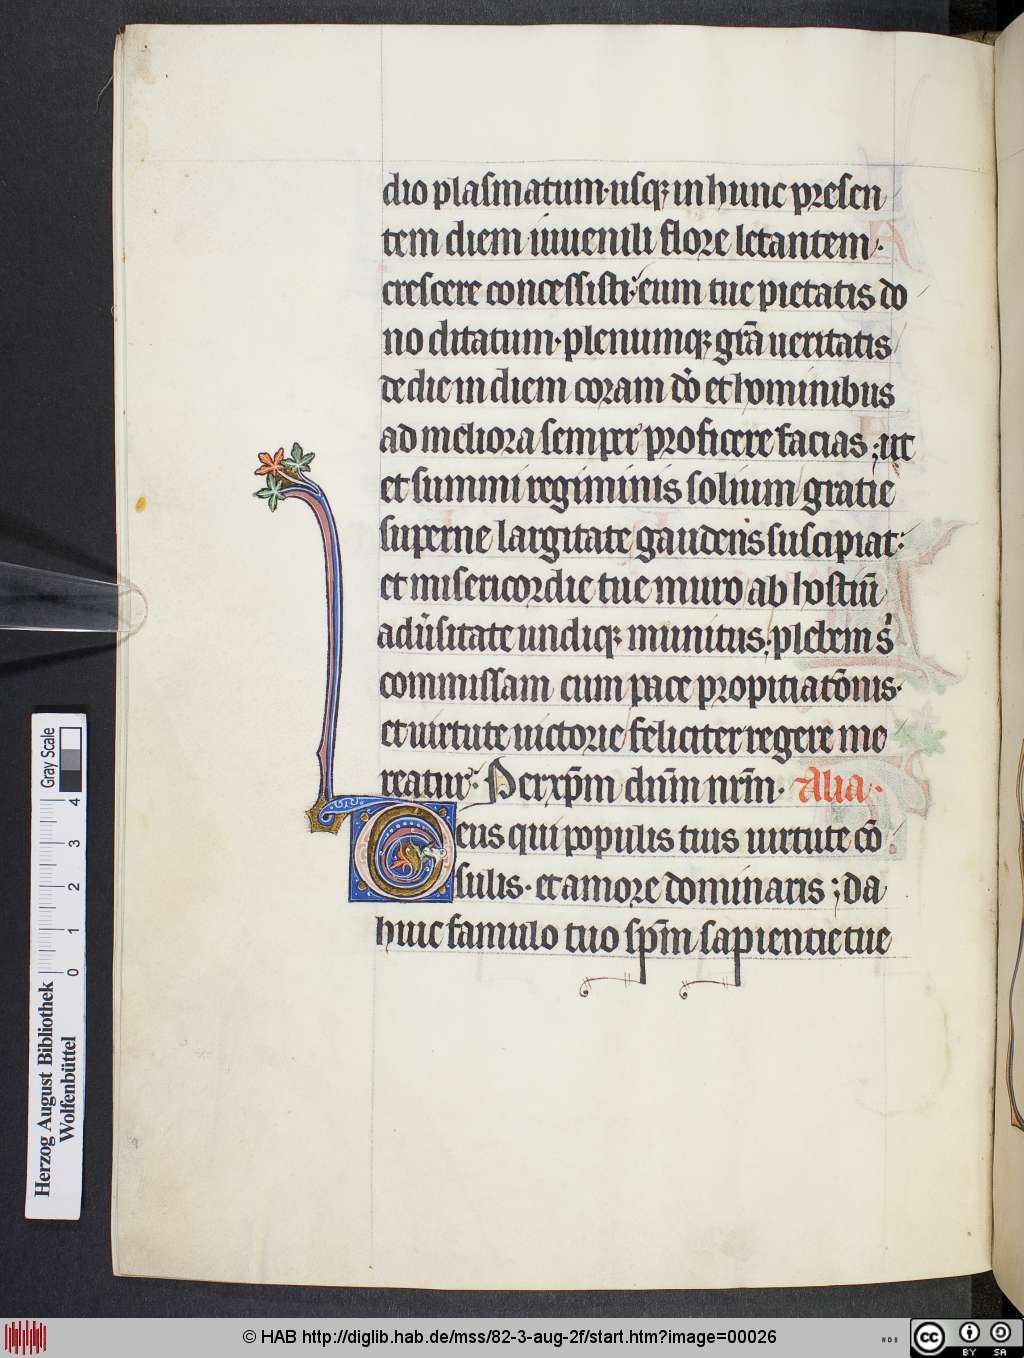 dio plasmatum· usqꝫ in hunc presen
tem diem iuuenili flore letantem·
crescere concessisti; eum tue pietatis do
no ditatum· plenumqꝫ gr̄a ueritatis
de die in diem coram d̄o et hominibus
ad meliora semper proficere facias ; ut
et summi regiminis solium gratie
superne largitate gaudens suscipiat:
et misericordie tue muro ab hostiū
adu̓sitate undiqꝫ munitus; plebem s̓
commissam cum pace propitiatōnis·
et uirtute uictorie feliciter regere me
reatur. Per xp̄m dn̄m nr̄m· Alia·
Deus qui populis tuis uirtute cō
sulis· et amore dominaris ; da
huic famulo tuo sp̄m sapientie tue
Gray Scale
4
3
2
1
0
Herzog August Bibliothek
Wolfenbüttel
© HAB http://diglib.hab.de/mss/82-3-aug-2f/start.htm?image=00026
WDB
cc BY SA